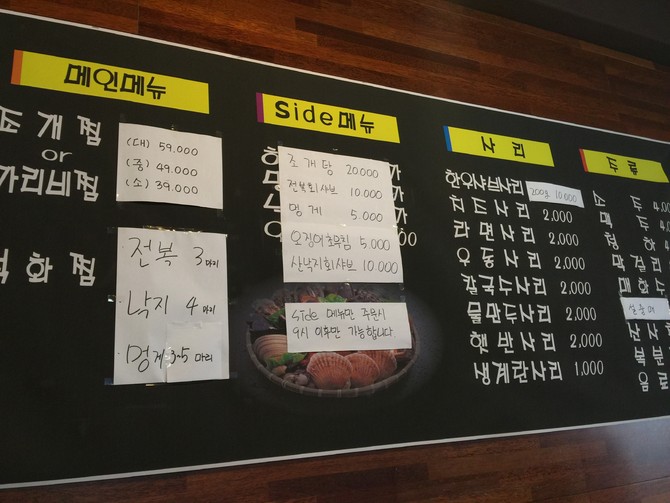 메인메뉴
조개찜
or
가리비찜
석화찜
(대) 59.000
(중) 49.000
(소) 39.000
전복 3 마리
낙지 4 마리
멍게 3~5 마리
Side메뉴
조개탕 20.000
전복회/샤브 10.000
멍게 5.000
오징어초무침 5.000
산낙지회/샤브 10.000
Side 메뉴만 주문시
9시 이후만 가능합니다.
사리
한우샤브사리 200g 10.000
치즈사리 2,000
라면사리 2,000
우동사리 2,000
칼국수사리 2,000
물만두사리 2,000
햇반사리 2,000
생계란사리 1,000
주류
소주 4,0
맥주 4,0
청하
막걸리
매화수
설중매
산사
복분
음료